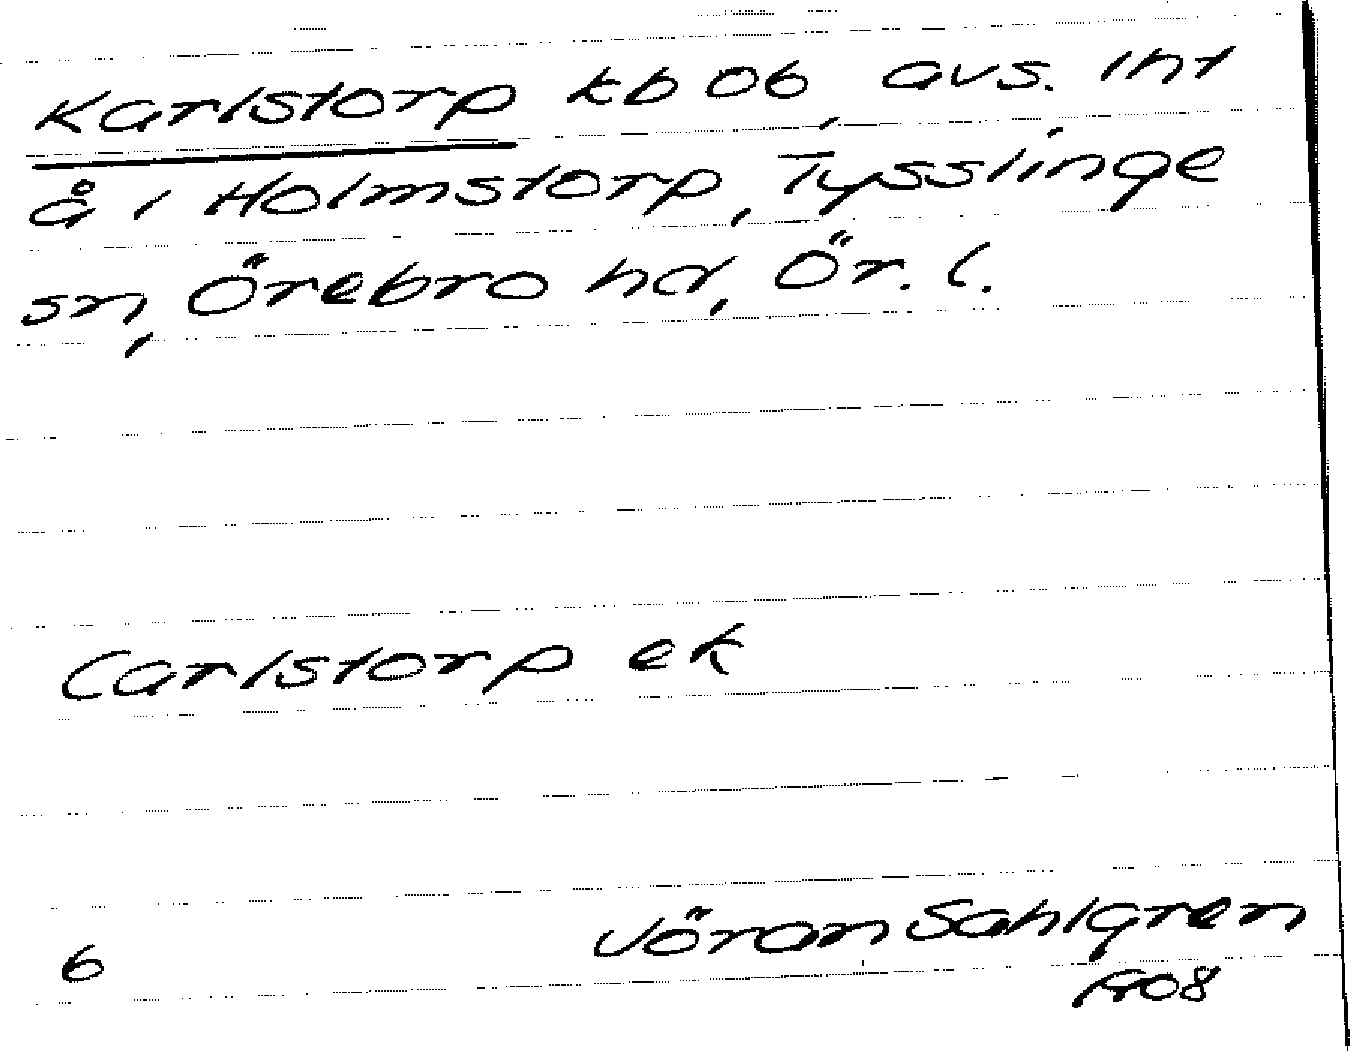 Karlstorp kb Ob, avs. int
å i Holmstorp, Tysslinge
sn, Örebro hd, Ör. l.
Carlstorp ek
6
Jöran Sahlgren
1908